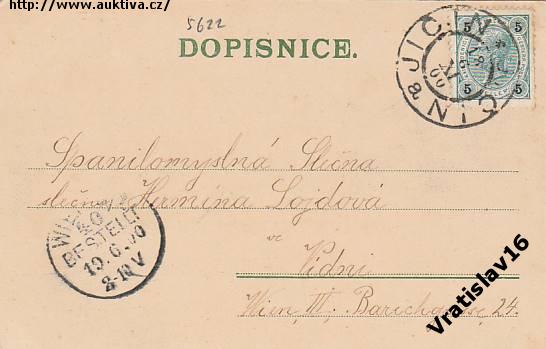 http://www.auktiva.cz/
5622
DOPISNICE.
5 5
5 5
JIČIN & JIČIN
Spanilomyslná Slečna
slečna Hermína Lojdová
ve
Vídni
Wien, III. Barichgasse 24.
WIEN
BESTELLT
19.6.00
8-10 V
Vratislav16